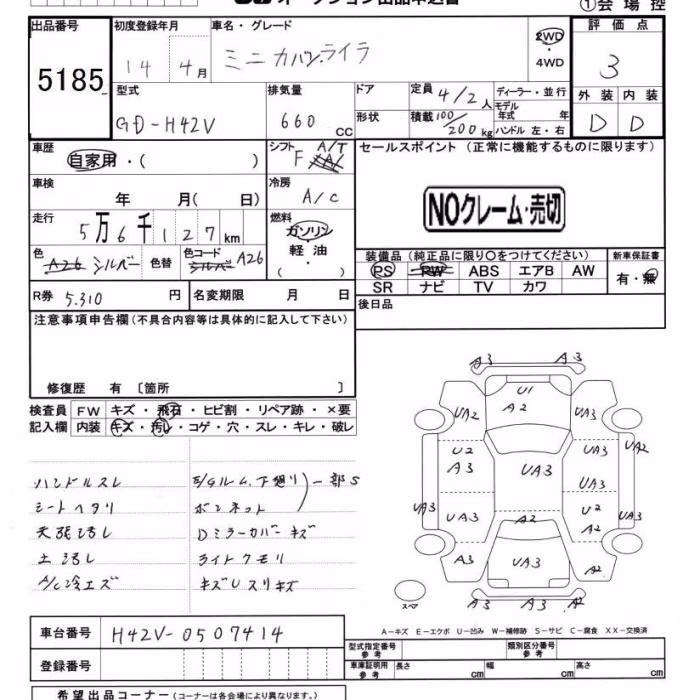 オークション出品申込書
①会場控
出品番号 初度登録年月 車名・グレード 評価点
5185 14 4月 ミニカバン.ライラ 2WD・4WD 3
型式 排気量 ドア 定員 4/2人 ディーラー・並行 外装 内装
GD-H42V 660CC 形状 積載 100/200kg モデル年式 年 D D
ハンドル 左・右
車歴 シフト A/T セールスポイント (正常に機能するものに限ります)
自家用・( ) F
車検 冷房 NOクレーム・売切
年 月( 日) A/C
走行 燃料
5万6千127km ガソリン・軽油・( )
色 A26 シルバー 色替 色コード シルバー A26
装備品 (純正品に限り〇をつけてください) 新車保証書
PS PW ABS エアB AW 有・無
SR ナビ TV カワ
R券 5.310 円 名変期限 月 日 後日品
注意事項申告欄(不具合内容等は具体的に記入して下さい)
修復歴 有 〔箇所 〕
検査員 FW キズ・飛石・ヒビ割・リペア跡・×要
記入欄 内装 キズ・汚れ・コゲ・穴・スレ・キレ・破レ
ハンドルスレ E/Gルム.下廻リ 一部S
シートヘタリ ボンネット
天張汚し Dミラーカバーキズ
土汚し ライトクモリ
A/C冷エズ キズUスリキズ
A3 A3
U1
UA2 A2 UA3
U2 UA3 UA2
A3 UA3 UA3
UA3 UA3 U2 UA3
A2 A2
A3 UA3 A2
A3 A2
スペア
A−キズ E−エクボ U−凹み W−補修跡 S−サビ C−腐食 XX−交換済
車台番号 H42V-0507414
型式指定番号 参考 類別区分番号 参考
登録番号
車庫証明用 参考 長さ cm 幅 cm 高さ cm
希望出品コーナー (コーナーは各会場により異なります。)